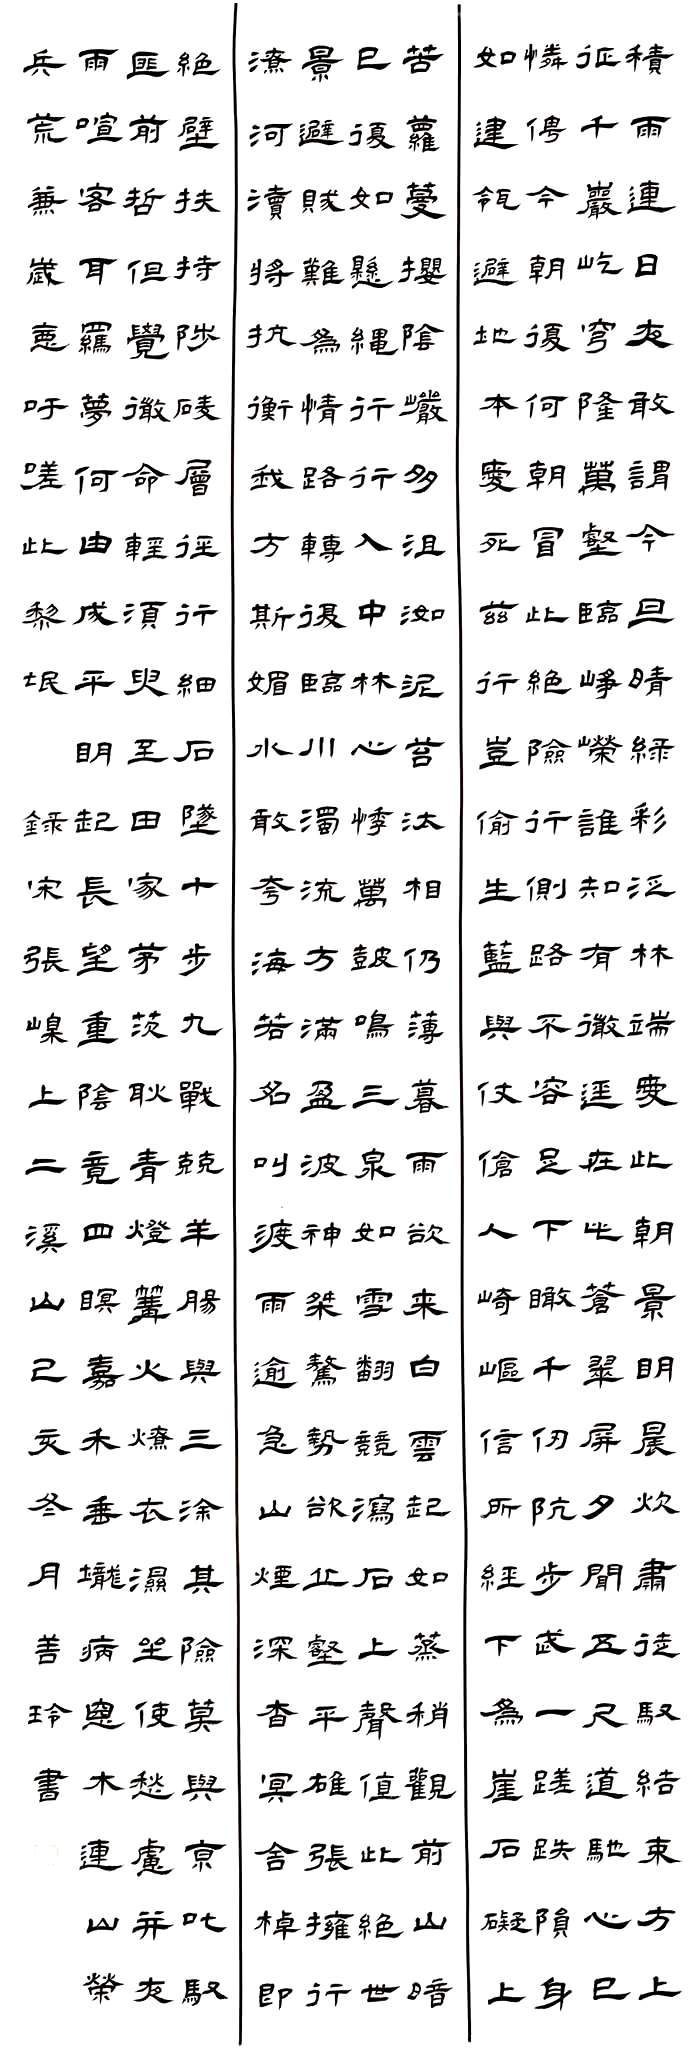 積雨連日夜敢謂今旦晴綠彩泛林端愛此朝景明晨炊肅徒馭結束方上
征千巖屹穹隆萬壑臨崢嶸誰知有微逕在此蒼翠屏夕聞五尺道馳心已
憐俜今朝復何朝冒此絕險行側路不容足下瞰千仞阬步武一蹉跌隕身
如建瓴避地本愛死茲行豈偷生藍與仗傖人崎嶇信所經下為崖石礙上
苦蘿蔓攖陰巘多沮洳泥苔汰相仍薄暮雨欲来白雲起如蒸稍觀前山暗
已復如懸繩行行入中林心悸萬鼓鳴三泉如雪翻競瀉石上聲值此絕世
景避賊難為情路轉復臨川濁流方滿盈波神桀驁勢欲止壑平雄張擁行
潦河瀆將抗衡我方斯媚水敢夸海若名叫渡雨逾急山煙深杳冥舍棹即
絕壁扶持陟崚層徑行細石墜十步九戰兢羊腸與三涂其險莫與京叱馭
匪前哲但覺微命輕須臾至田家茅茨耿青燈篝火燎衣濕坐使愁慮并夜
雨喧客耳羈夢何由成平明起長望重陰竟四瞑嘉禾垂壠病恩木連山榮
兵荒兼歲恚吁嗟此黎氓 錄宋張嵲上二溪山己亥冬月善玲書